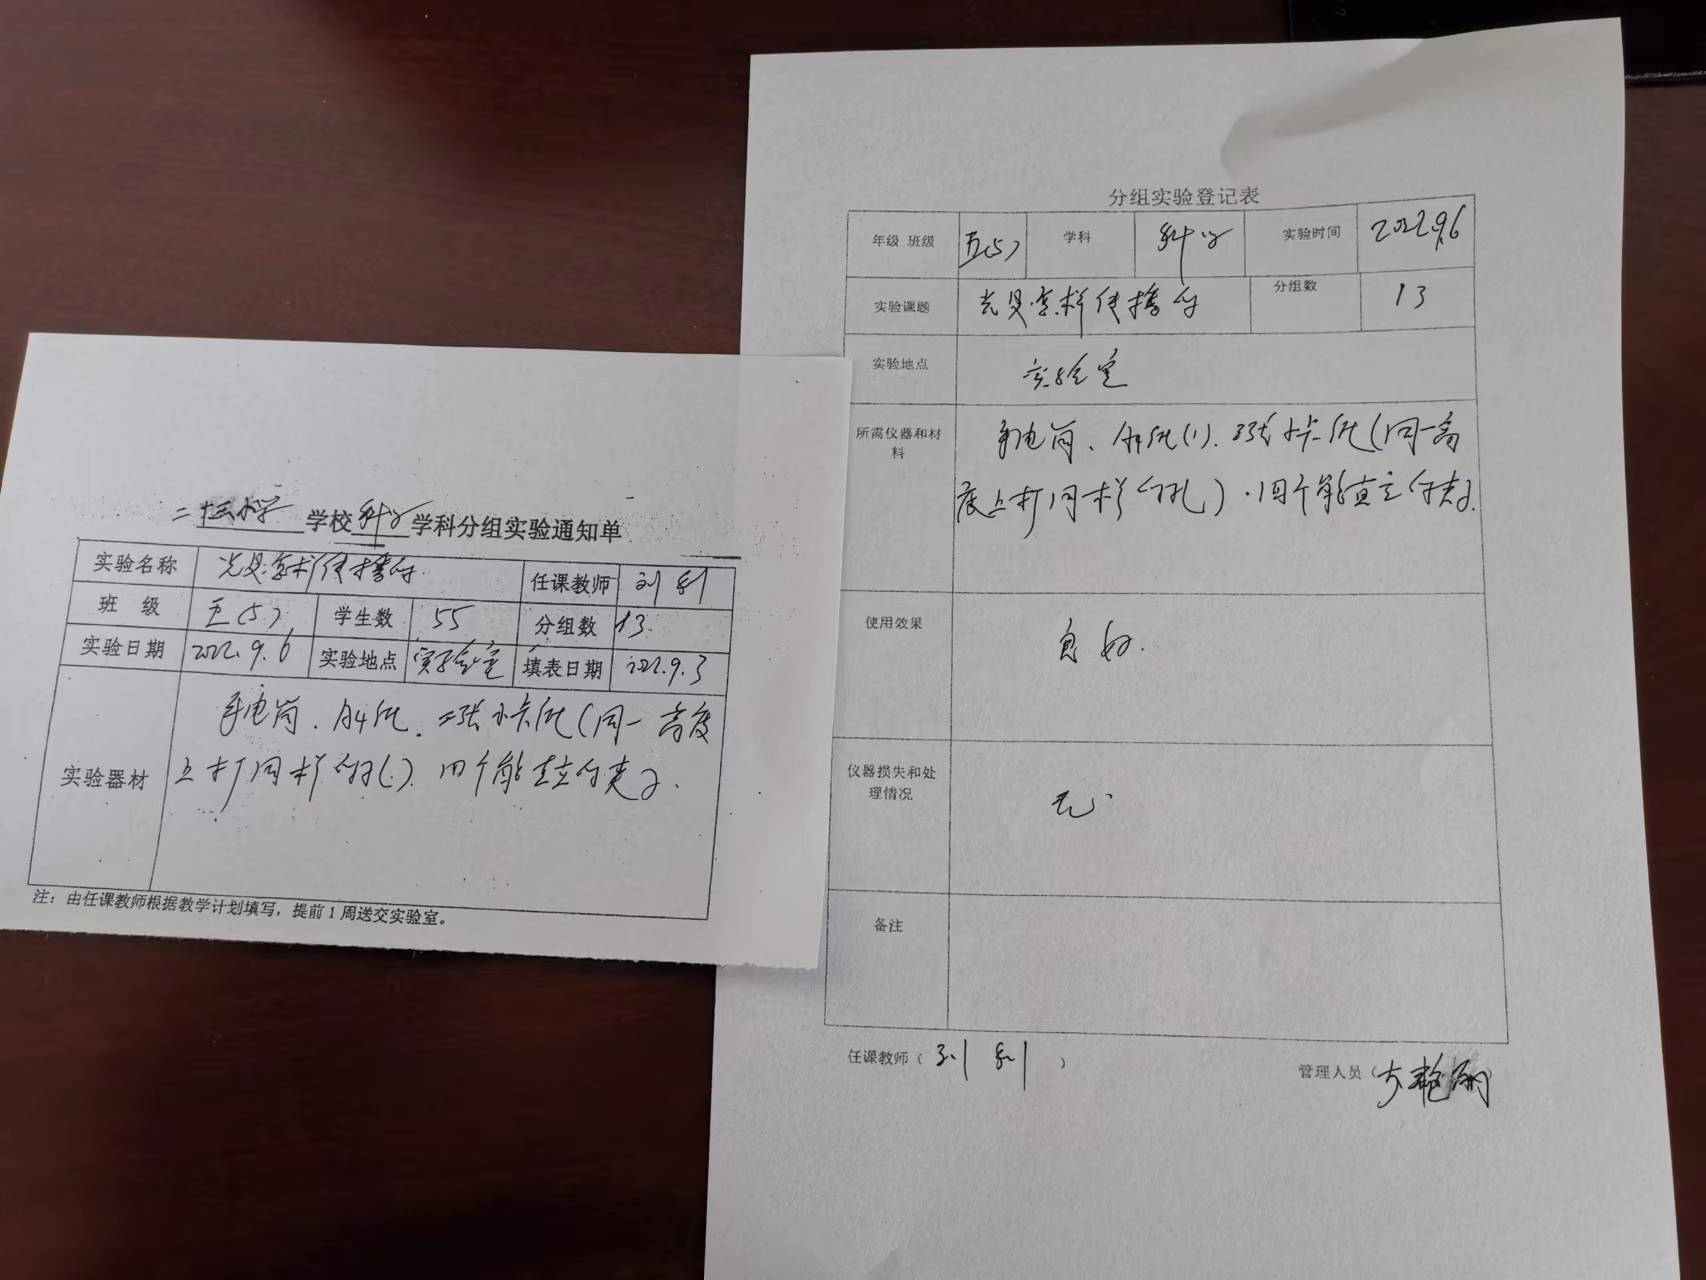 二十三小学 学校 科学 学科分组实验通知单
实验名称 光是怎样传播的 任课教师 刘
班 级 五(5) 学生数 55 分组数 13
实验日期 2022.9.6 实验地点 实验室 填表日期 2022.9.3
实验器材 手电筒、A4纸、三张小卡纸(同一高度
上打同样的孔)、四个能直立的夹子.
注：由任课教师根据教学计划填写，提前1周送交实验室。
分组实验登记表
年级 班级 五(5) 学科 科学 实验时间 2022.9.6
实验课题 光是怎样传播的 分组数 13
实验地点 实验室
所需仪器和材料 手电筒、A4纸(1)、3张小卡纸(同一高
度上打同样的孔)、四个能直立的夹子.
使用效果 良好.
仪器损失和处理情况 无
备注
任课教师（刘 ） 管理人员（